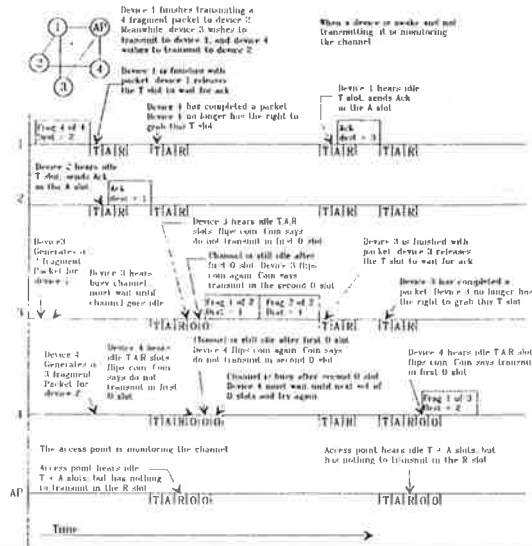 Device 1 finishes transmitting a
4 fragment packet to device 2
Meanwhile, device 3 wishes to
transmit to device 1, and device 4
wishes to transmit to device 2
When a device is awake and not
transmitting it is monitoring
the channel
1
AP
2
3
4
Device 1 is finished with
packet, device 1 releases
the T slot to wait for ack
Device 1 has completed a packet
Device 1 no longer has the right to
grab this T slot
Device 1 hears idle
T slot, sends Ack
in the A slot
Frag 4 of 4
Dest = 2
Ack
dest = 3
1
T A R
T A R
T A R
T A R
Device 2 hears idle
T slot, sends Ack
in the A slot
Ack
dest = 1
2
T A R
T A R
T A R
T A R
Device 3
Generates a
2 fragment
Packet for
device 1
Device 3 hears
busy channel
must wait until
channel goes idle
Device 3 hears idle T,A,R
slots, flips coin. Coin says
do not transmit in first O slot
Channel is still idle after
first O slot. Device 3 flips
coin again. Coin says
transmit in the second O slot
Frag 1 of 2
Dest = 1
Frag 2 of 2
Dest = 1
Device 3 is finished with
packet, device 3 releases
the T slot to wait for ack
Device 3 has completed a
packet. Device 3 no longer has
the right to grab this T slot
3
T A R O O
T A R
T A R
Device 4
Generates a
3 fragment
Packet for
device 2
Device 4 hears
idle T,A,R slots
flips coin. Coin
says do not
transmit in first
O slot
Channel is still idle after first O slot
Device 4 flips coin again. Coin says
do not transmit in second O slot
Channel is busy after second O slot
Device 4 must wait until next set of
O slots and try again
Device 4 hears idle T,A,R slots
flips coin. Coin says transmit
in first O slot
Frag 1 of 3
Dest = 2
4
T A R O O
T A R O
The access point is monitoring the channel
Access point hears idle
T + A slots, but has nothing
to transmit in the R slot
Access point hears idle T + A slots, but
has nothing to transmit in the R slot
AP
T A R O O
T A R O O
Time